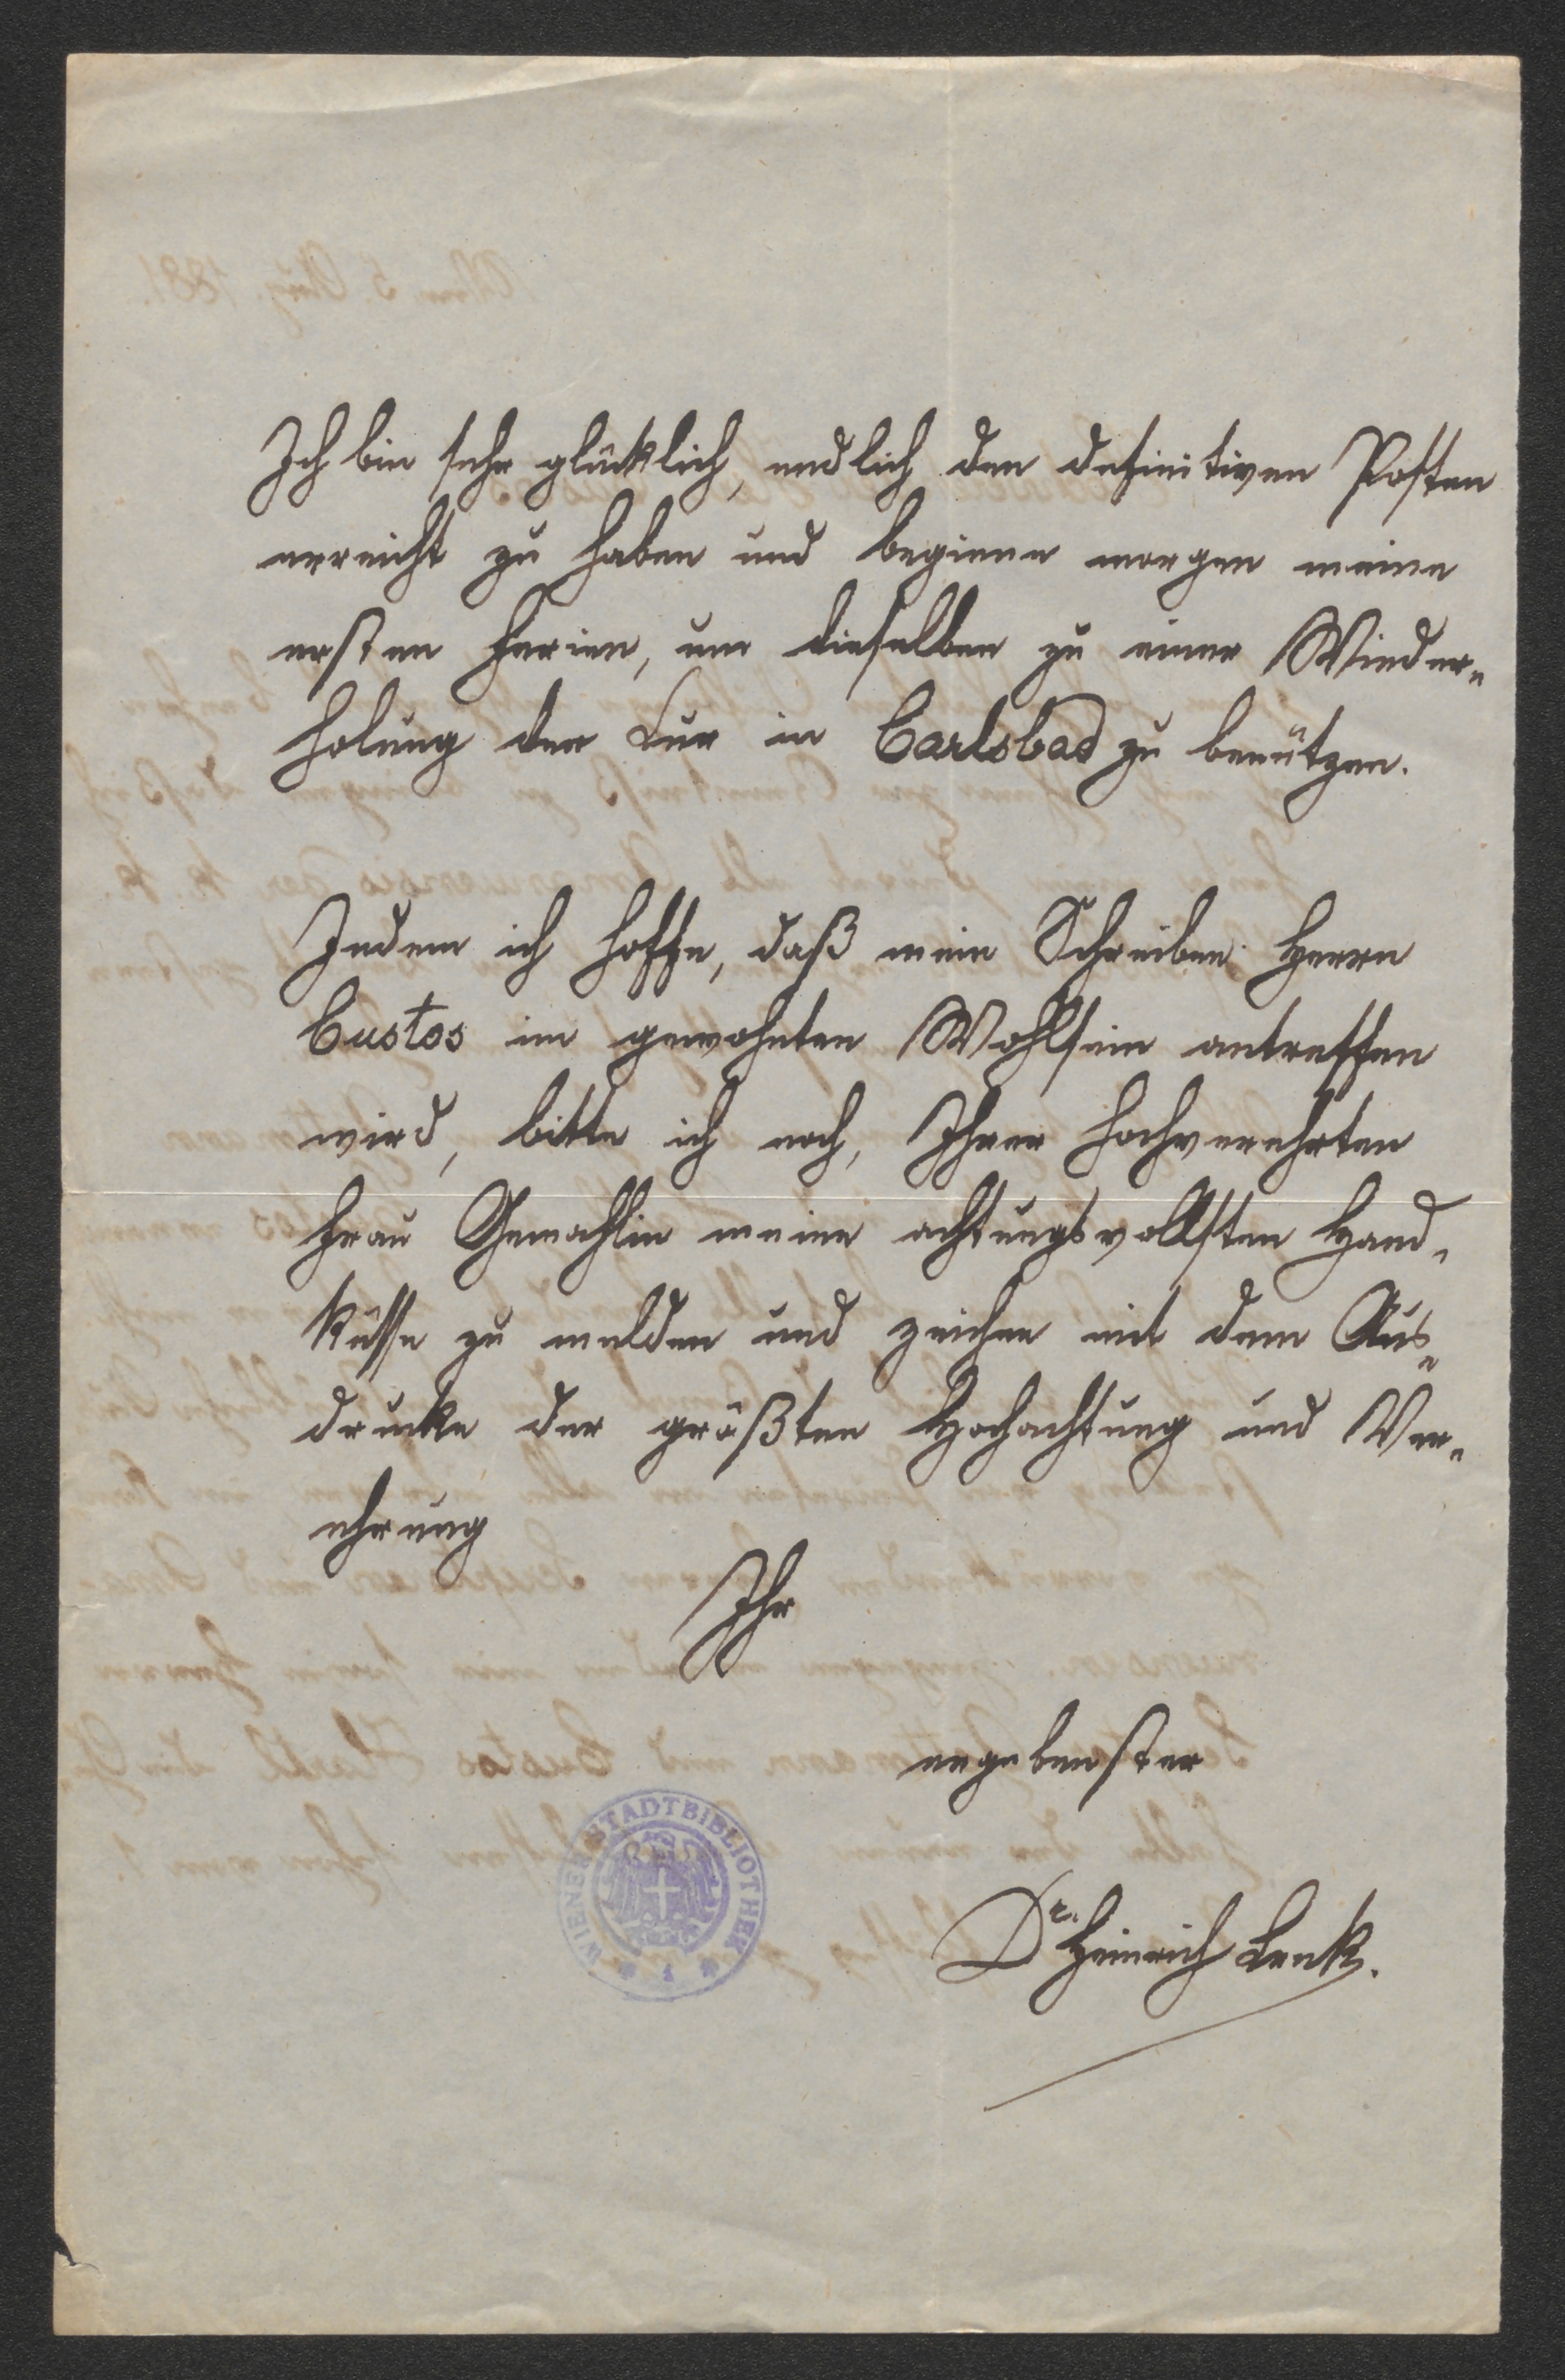 Ich bin sehr glücklich, endlich den definitiven Posten
erreicht zu haben und beginne morgen meine
ersten Ferien, um dieselben zu einer Wieder-
holung der Cur in Carlsbad zu benützen.
Indem ich hoffe, daß mein Schreiben Herrn
Custos im gewohnten Wohlsein antreffen
wird, bitte ich noch, Ihrer hochverehrten
Frau Gemahlin meine achtungsvollsten Hand-
küsse zu melden und zeichne mit dem Aus-
drucke der größten Hochachtung und Ver-
ehrung
Ihr
ergebenster
WIENER STADTBIBLIOTHEK
* 1 *
Dr. Heinrich Lenk.